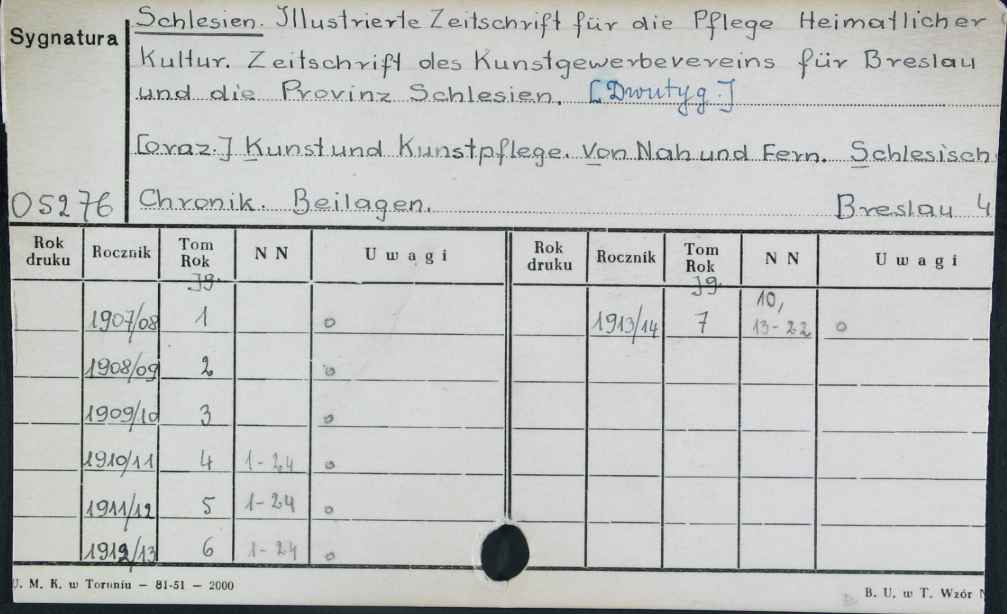 Sygnatura
Schlesien. Illustrierte Zeitschrift für die Pflege Heimatlicher
Kultur. Zeitschrift des Kunstgewerbevereins für Breslau
und die Provinz Schlesien. [Dwutyg.]
[oraz.] Kunst und Kunstpflege. Von Nah und Fern. Schlesisch
05276 Chronik. Beilagen. Breslau 4
Rok druku Rocznik Tom Rok N N Uwagi Rok druku Rocznik Tom Rok N N Uwagi
Jg. Jg.
1907/08 1 o 1913/14 7 10, 13-22 o
1908/09 2 o
1909/10 3 o
1910/11 4 1-24 o
1911/12 5 1-24 o
1912/13 6 1-24 o
U. M. K. w Toruniu — 81-51 — 2000
B. U. w T. Wzór N